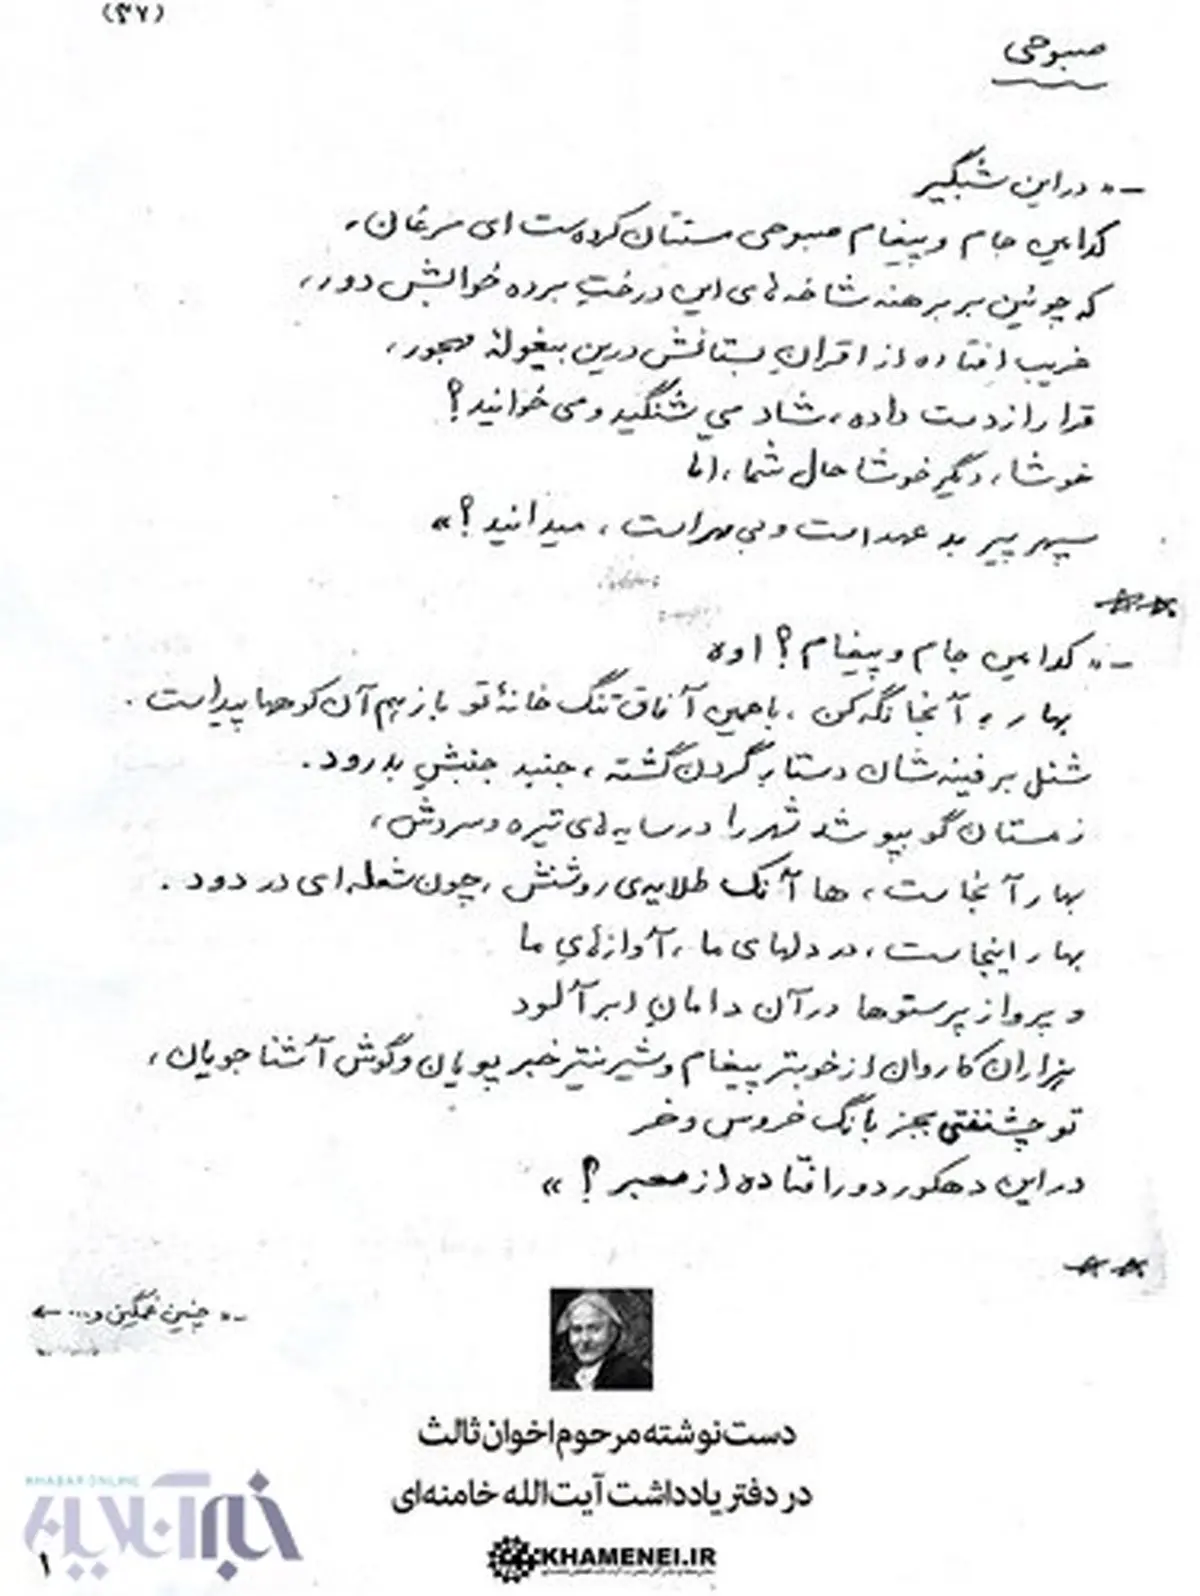 (۳۷)
صبوحی
- «در این شبگیر
کدامین جام و پیغام صبوحی مستتان کرده‌ست ای مرغان،
که چونین بر برهنه شاخه‌های این درختِ برده خوابش دور،
غریب افتاده از اقرانِ بستانش درین بیغولهٔ مهجور،
قرار از دست داده، شاد می شنگید و می خوانید؟
خوشا، دیگر خوشا حال شما، امّا
سپهر پیر بد عهد است و بی مهر است، میدانید؟»
**
- «کدامین جام و پیغام؟ اوه
بهار، به آنجا نگه کن، با همین آفاق تنگ خانهٔ تو باز هم آن کوهها پیداست.
شنل برفینه‌شان دستار گردن گشته، جنبد جنبش بدرود.
زمستان گو بپوشد شهر را در سایه‌های تیره و سردش،
بهار آنجاست، ها آنک طلایه‌ی روشنش، چون شعله‌ای در دود.
بهار اینجاست، در دلهای ما، آوازهای ما
و پرواز پرستوها در آن دامانِ ابرآلود
هزاران کاروان از خوبتر پیغام و شیرینتر خبر پویان و گوش آشنا جویان،
تو چشنفتی بجز بانگ خروس و خر
در این دهکور دور افتاده از معبر؟»
**
- «چنین غمگین و... ←
دست‌نوشته مرحوم اخوان ثالث
در دفتر یادداشت آیت‌الله خامنه‌ای
KHAMENEI.IR
KHABAR ONLINE
خبرآنلاین
۱